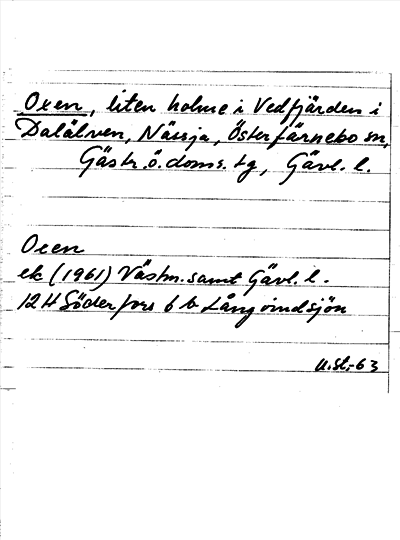 Oxen, liten holme i Vedfjärden i
Dalälven, Nässja, Österfärnebo sn,
Gästr. ö. doms. tg, Gävl. l.
Oxen
ek (1961) Västm. samt Gävl. l.
12 H Söderfors 6 b Långvindsjön
U.St.-63